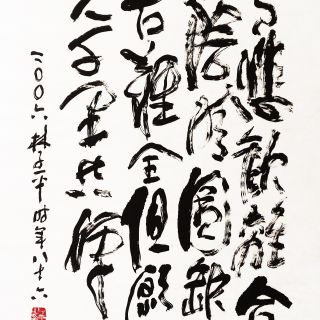 有悲歡離合
陰晴圓缺
古難全但願
久千里共嬋
二〇〇六 林平时年八十六